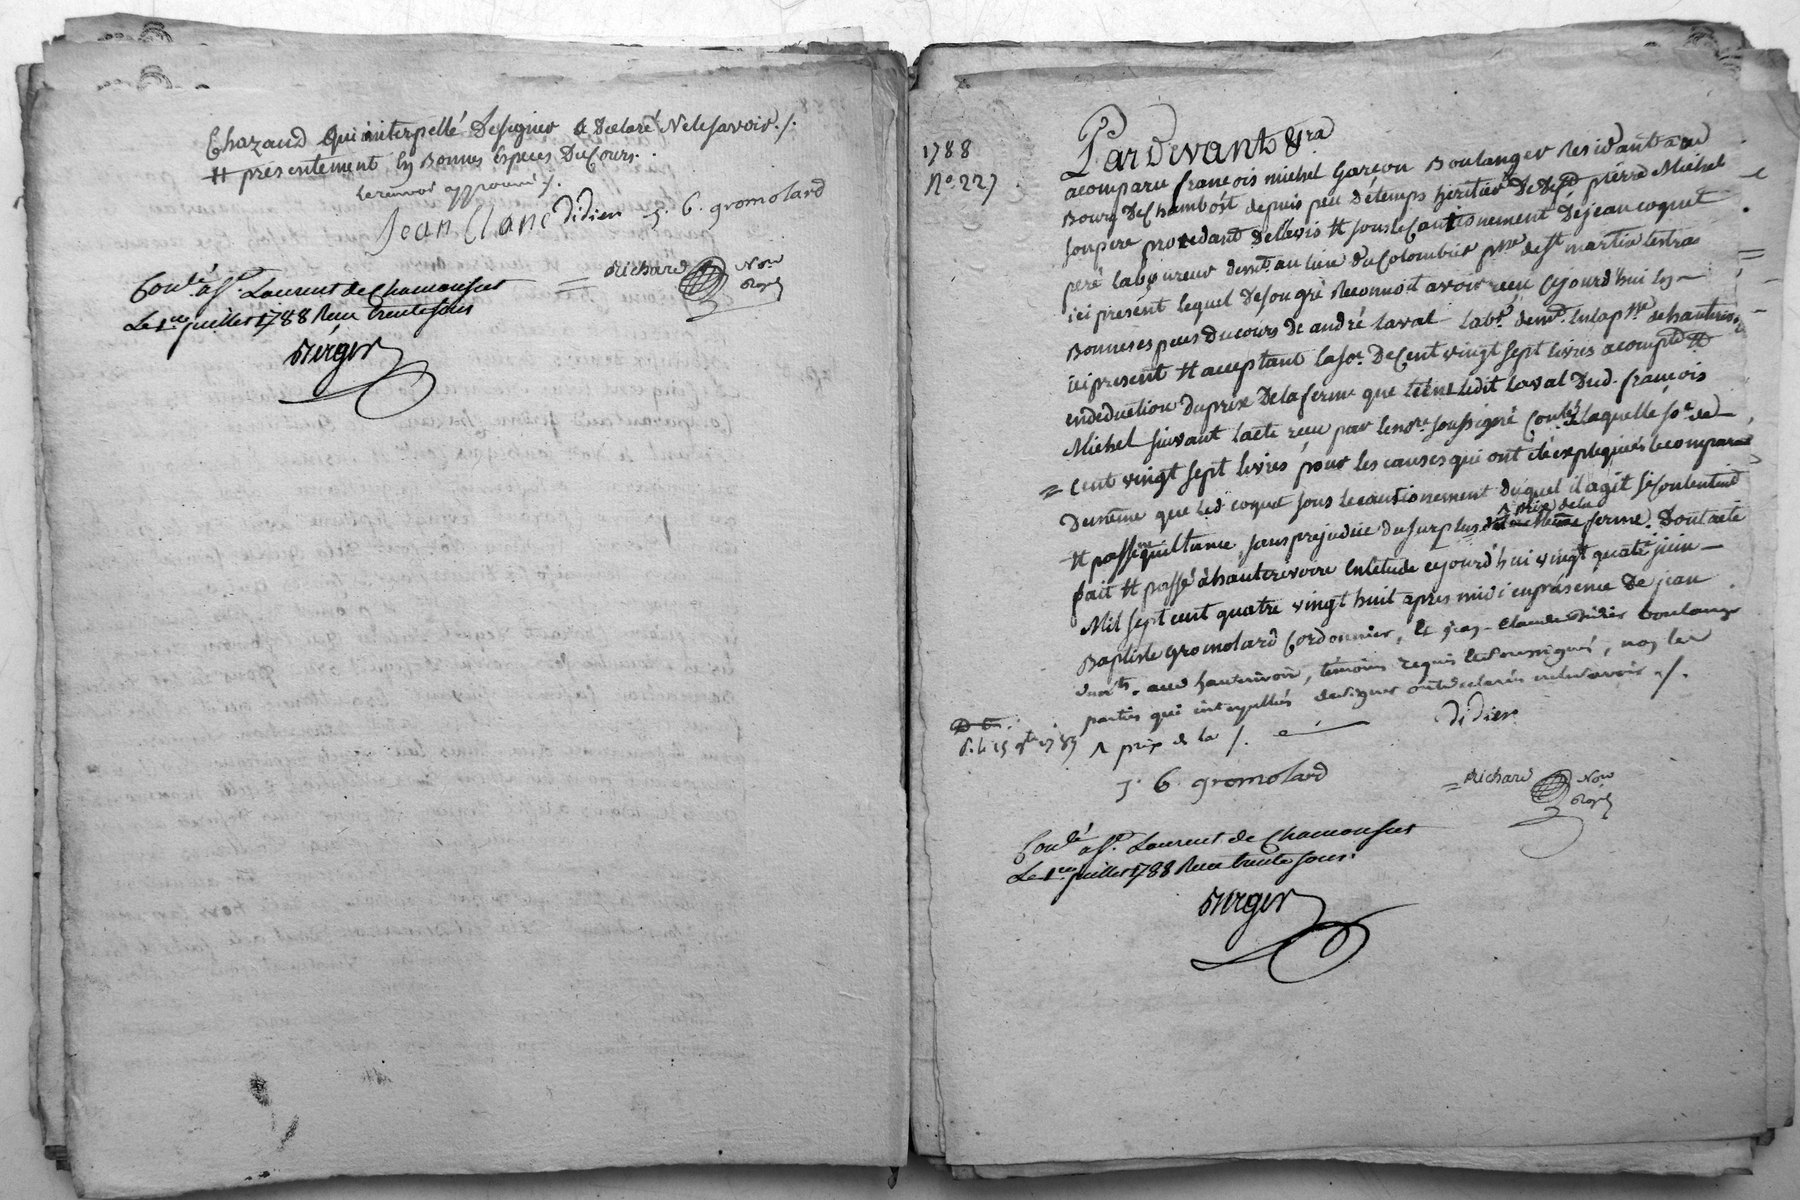 Chazaud qui interpellé de signer a declaré ne le savoir ./.
# présentement en Bonnes Especes Du Cours.
le renvoi approuvé /.
Jean Clanc didier J. B. gromolard
Richard No.re
Royal
Con.lé à S.t Laurent de Chamousset
Le 1.er juillet 1788 Reçu trente sous
Verger
1788
N.o 227
Par Devant &ra
a comparu françois michel Garçon Boulanger Residant au
Bourg De Chambost depuis peu de temps heritier De deft pierre Michel
son pere procedant de l'avis et sous le Cautionement De jean coquet
peré laboureur demt. au lieu du Colombier psse de st martin lestra
ici present lequel De son gré Reconnoit avoir reçu cejourd'hui en
Bonnes especes du cours de andré Laval lab.r dem.t en la p.sse de hauteriv.
ici present et acceptant la so.e De Cent vingt sept livres a compte et
en deduction du prix De la ferme que tient ledit Laval Dud. françois
Michel suivant l'acte reçu par le no.re soussigné Con.lé laquelle so.e de
Cent vingt sept livres pour les causes qui ont été expliquées le comparant
De même que led coquet sous le cautionement Duquel il agit se Contentent
et passent quittance, sans prejudice du surplus ferme. Dont acte
^ prix de la
fait et passé à hauterivoire en l'étude cejourd'hui vingt quatre juin
Mil sept cent quatre vingt huit après midi en présence De jean
Baptiste gromolard Cordonnier, et jean Claude Didier boulanger
dem.ts aud hauterivoir, témoins requis et soussignés, non les
parties qui interpellées de signer ont declarés ne le savoir ./.
^ prix de la /.
didier
J. B. gromolard
Richard No.re
Royal
Con.lé à S.t Laurent de Chamousset
Le 1.er juillet 1788 Reçu trente sous.
Verger